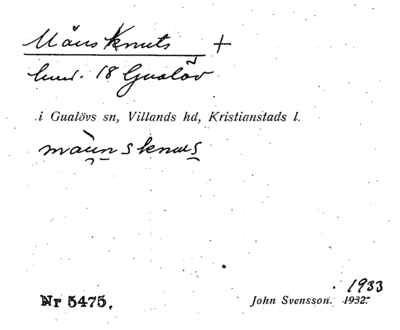 Måns Knuts +
hmd. 18 Gualöv
i Gualövs sn, Villands hd, Kristianstads l.
Nr 5475.
1933
John Svensson. 1932.